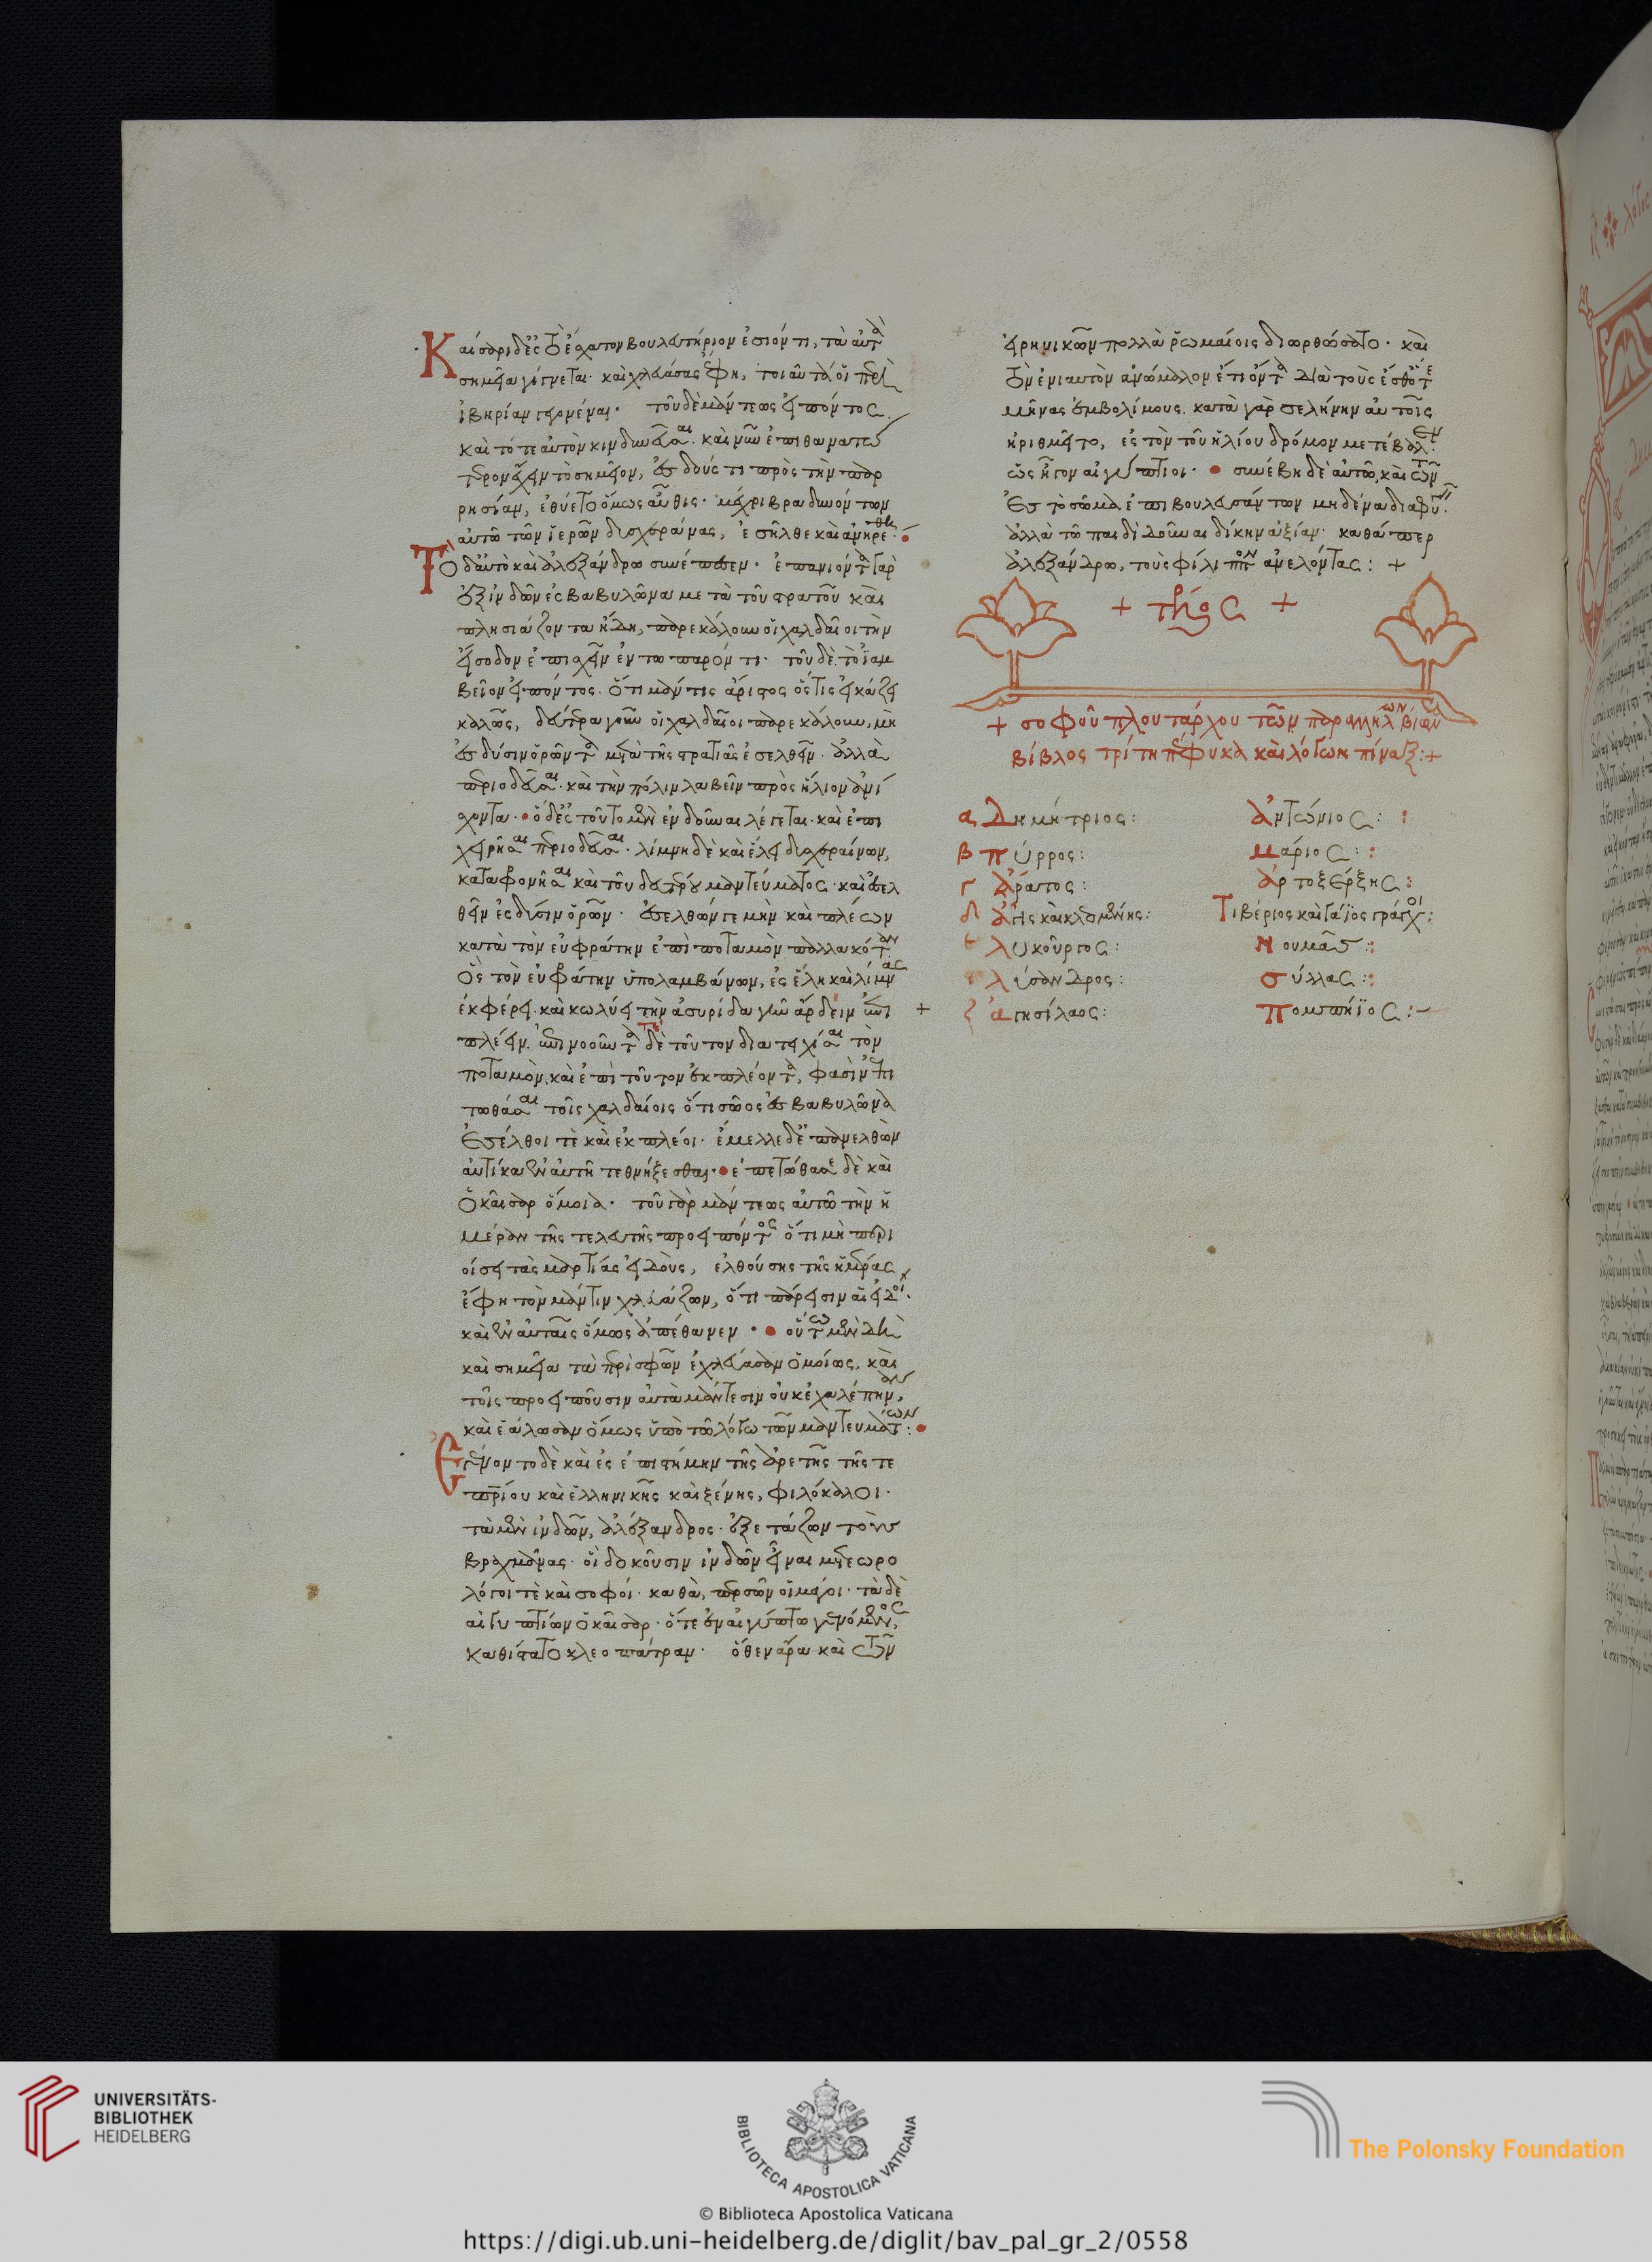 Καίσαρι δ' ἐς τὸ ἔσχατον βουλευτήριον ἐσιόντι, τὰ αὐτὰ
σημεῖα γίγνεται· καὶ χλευάσας ἔφη, τοιαῦτά οἱ περὶ
ἰβηρίαν γεγονέναι· τοῦ δὲ μάντεως εἰπόντος.
καὶ τότε αὐτὸν κινδυνεῦσαι· καὶ νῦν ἐπιθανατώ
τερον ἔχειν τὸ σημεῖον, ἐνδούς τι πρὸς τὴν παρ
ρησίαν, ἐθύετο ὅμως αὖθις· μέχρι βραδυνόντων
αὐτῶ τῶν ἱερῶν δυσχεράνας, ἐσῆλθε καὶ ἀνηρέθη·
Τὸ δ' αὐτὸ καὶ ἀλεξάνδρω συνέπεσεν· ἐπανιόντα γὰρ
ἐξ ἰνδῶν ἐς βαβυλῶνα μετὰ τοῦ στρατοῦ καὶ
πλησιάζοντα ἤδη, παρεκάλουν οἱ χαλδαῖοι τὴν
εἴσοδον ἐπισχεῖν ἐν τω παρόντι· τοῦ δὲ τὸ ἰαμ
βεῖον εἰπόντος· ὅτι μάντις ἄριστος ὅστις εἰκάζει
καλῶς, δεύτερα γοῦν οἱ χαλδαῖοι παρεκάλουν, μὴ
ἐς δύσιν ὁρῶντα μετὰ τῆς στρατιᾶς ἐσελθεῖν· ἀλλὰ
περιοδεῦσαι· καὶ τὴν πόλιν λαβεῖν πρὸς ἥλιον ἀνί
σχοντα· ὁ δ' ἐς τοῦτο μὲν ἐνδοῦναι λέγεται· καὶ ἐπι
χειρῆσαι περιοδεῦσαι· λίμνη δὲ καὶ ἕλει δυσχεραίνων,
καταφρονῆσαι καὶ τοῦ δευτέρου μαντεύματος· καὶ ἐσελ
θεῖν ἐς δύσιν ὁρῶν· ἐσελθών γε μὴν καὶ πλέων
κατὰ τὸν εὐφράτην ἐπὶ ποταμὸν παλλακόταν
ὃς τὸν εὐφράτην ὑπολαμβάνων, ἐς ἕλη καὶ λίμνας
ἐκφέρει· καὶ κωλύει τὴν ἀσυρίδα γῆν ἄρδειν ἐπι
πλέειν. ἐπινοοῦντα δὲ τοῦτον διατειχίσαι τὸν
ποταμὸν, καὶ ἐπὶ τοῦτον ἐκπλέοντα, φασὶν ἐπι
τωθάσαι τοῖς χαλδαίοις ὅτι σῶος ἐς βαβυλῶνα
ἐσέλθοι τὲ καὶ ἐκπλέοι· ἔμελλε δ' ἐπανελθὼν
αὐτίκα ἐν αὐτῆ τεθνήξεσθαι· ἐπετώθασε δὲ καὶ
ὁ καῖσαρ ὅμοια· τοῦ γὰρ μάντεως αὐτῶ τὴν ἡ
μέραν τῆς τελευτῆς προειπόντος ὅτι μὴ περι
οίσει τὰς μαρτίας εἰδοὺς, ἐλθούσης τῆς ἡμέρας
ἔφη τὸν μάντιν χλευάζων, ὅτι πάρεισιν αἱ εἰδοί·
καὶ ἐν αὐταῖς ὅμως ἀπέθανεν· οὕτω μὲν δὴ
καὶ σημεῖα τὰ περὶ σφῶν ἐχλεύασαν ὁμοίως, καὶ
τοῖς προειποῦσιν αὐτὰ μάντεσιν οὐκ ἐχαλέπηναν,
καὶ ἑάλωσαν ὅμως ὑπὸ τῶ λόγω τῶν μαντευμάτων:
Ἐγένοντο δὲ καὶ ἐς ἐπιστήμην τῆς ἀρετῆς τῆς τε
πατρίου καὶ ἑλληνικῆς καὶ ξένης, φιλόκαλοι·
τὰ μὲν ἰνδῶν, ἀλέξανδρος· ἐξετάζων τοὺς
βραχμᾶνας· οἳ δοκοῦσιν ἰνδῶν εἶναι μετεωρο
λόγοι τὲ καὶ σοφοί· καθὰ, περσῶν οἱ μάγοι· τὰ δὲ
αἰγυπτίων ὁ καῖσαρ· ὅτε ἐν αἰγύπτω γενόμενος,
καθίστατο κλεοπάτραν· ὅθεν ἄρα καὶ τῶν
εἰρηνικῶν πολλὰ ῥωμαίοις διωρθώσατο· καὶ
τὸν ἐνιαυτὸν ἀνώμαλον ἔτι ὄντα διὰ τοὺς ἔσθ' ὅτε
μῆνας ἐμβολίμους. κατὰ γὰρ σελήνην αὐτοῖς
ἠριθμεῖτο, ἐς τὸν τοῦ ἡλίου δρόμον μετέβαλεν·
ὡς ἦγον αἰγύπτιοι· συνέβη δὲ αὐτῶ, καὶ τῶν
ἐς τὸ σῶμα ἐπιβουλευσάντων μηδένα διαφυγεῖν·
ἀλλὰ τῶ παιδὶ δοῦναι δίκην ἀξίαν· καθάπερ
ἀλεξάνδρω, τοὺς φίλιππον ἀνελόντας: +
+ τέλος +
+ σοφοῦ πλουτάρχου τῶν παραλλήλων βίων
βίβλος τρίτη πέφυκα καὶ λόγων πίναξ:+
α Δημήτριος: Ἀντώνιος:
β πύρρος: μάριος:
γ Ἄρατος: ἀρτοξέρξης:
δ ἄγις καὶ κλεομένης: Τιβέριος καὶ Γάϊος γράγχοι:
ε λυκοῦργος: Νουμᾶς:
λύσανδρος: σύλλας:
ζ ἀγησίλαος: πομπήϊος:
UNIVERSITÄTS-
BIBLIOTHEK
HEIDELBERG
BIBLIOTECA APOSTOLICA VATICANA
The Polonsky Foundation
© Biblioteca Apostolica Vaticana
https://digi.ub.uni-heidelberg.de/diglit/bav_pal_gr_2/0558